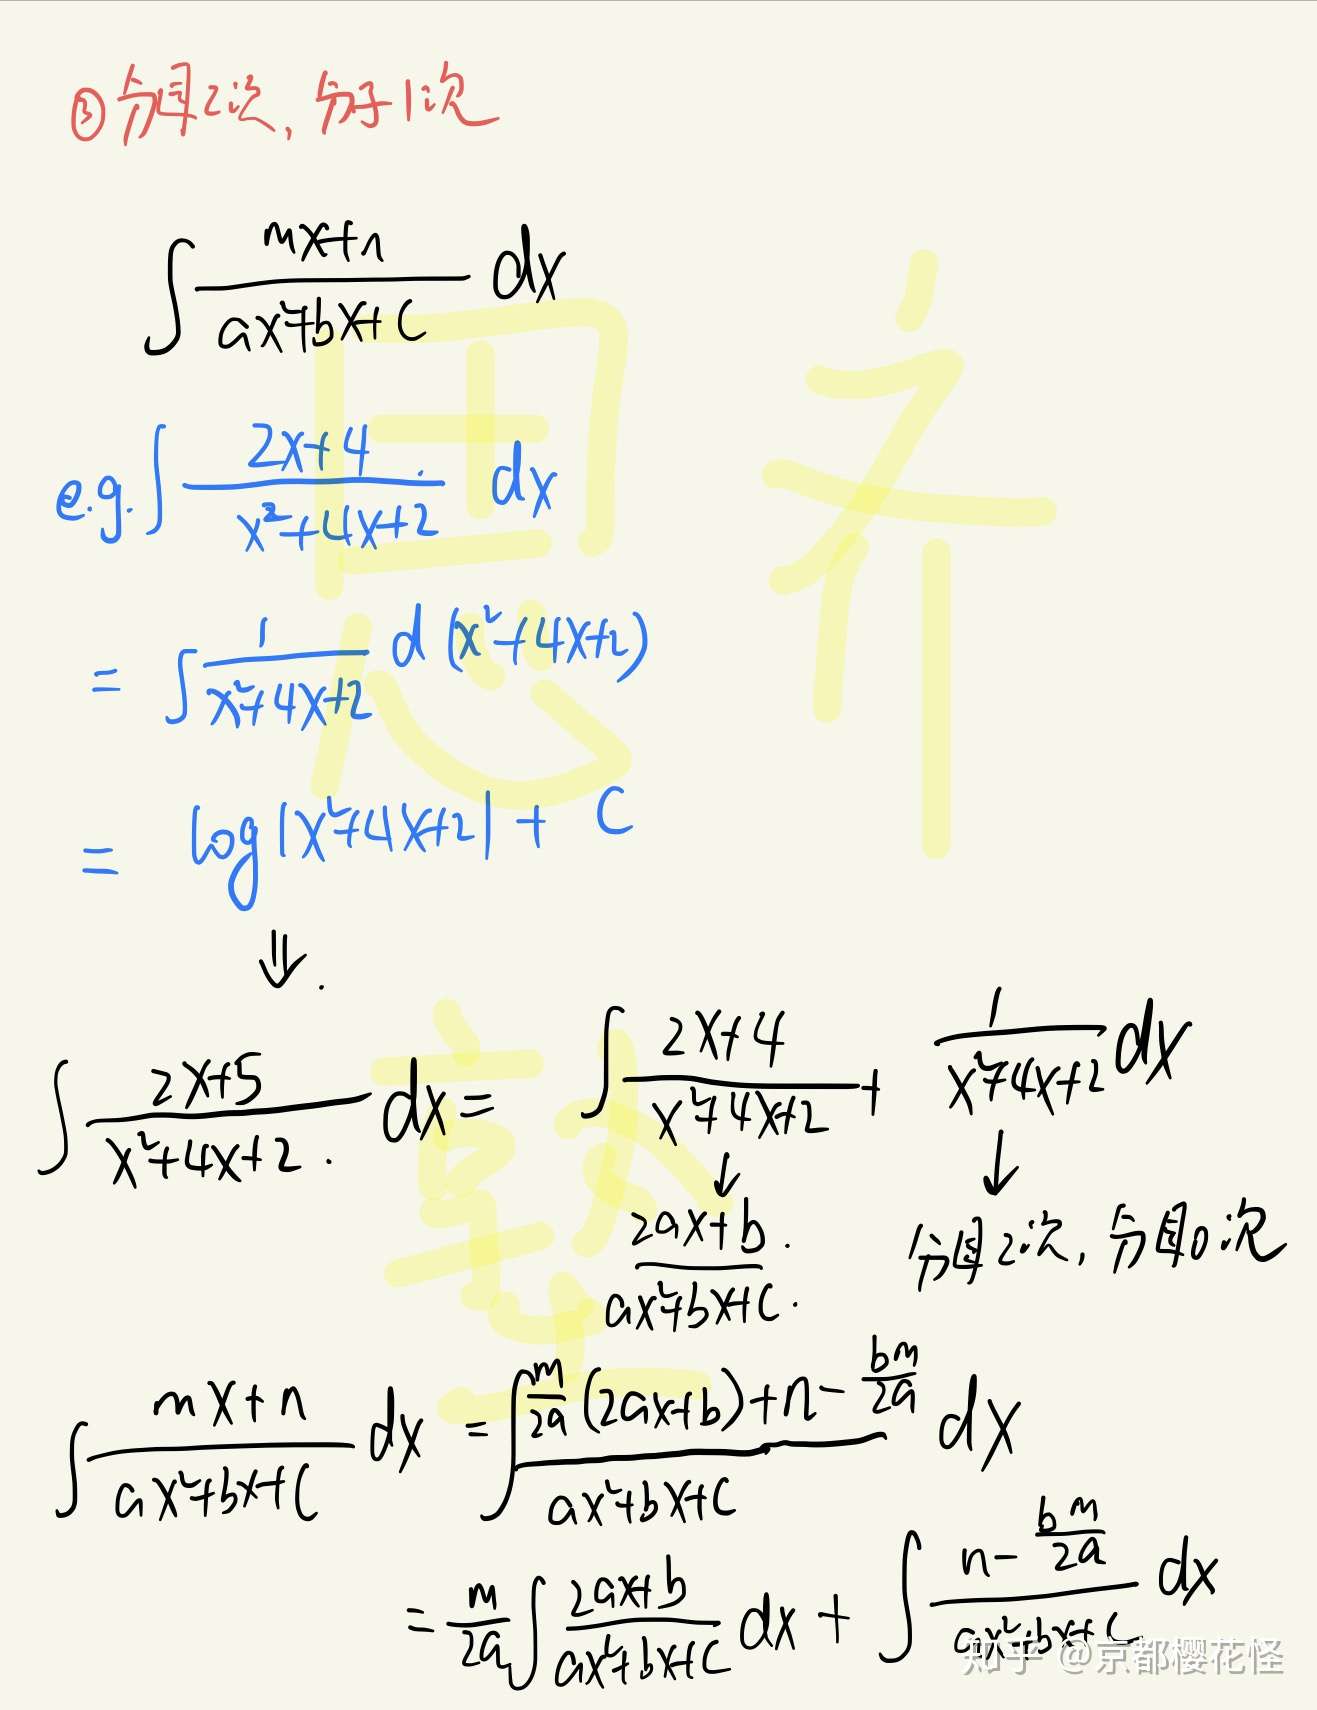 ③分母2次,分子1次
∫ (mx+n)/(ax²+bx+c) dx
e.g. ∫ (2x+4)/(x²+4x+2) dx
= ∫ 1/(x²+4x+2) d(x²+4x+2)
= log|x²+4x+2| + C
⇓.
∫ (2x+5)/(x²+4x+2) dx = ∫ (2x+4)/(x²+4x+2) + 1/(x²+4x+2) dx
↓ ↓
(2ax+b)/(ax²+bx+c) 分母2次,分母0次
∫ (mx+n)/(ax²+bx+c) dx = ∫ (m/2a (2ax+b)+n-bm/2a)/(ax²+bx+c) dx
= m/2a ∫ (2ax+b)/(ax²+bx+c) dx + ∫ (n-bm/2a)/(ax²+bx+c) dx
思齐
塾
知乎 @京都樱花怪